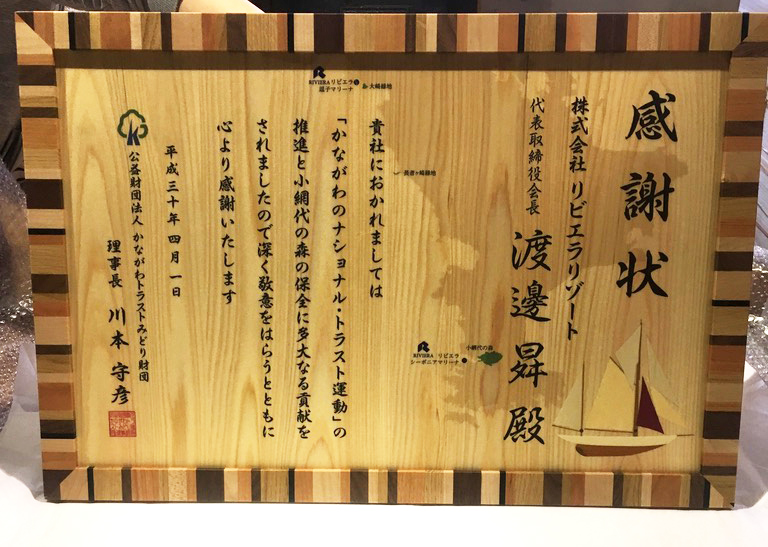 感謝状
株式会社 リビエラリゾート
代表取締役会長
渡邊 昇 殿
貴社におかれましては
「かながわのナショナル・トラスト運動」の
推進と小網代の森の保全に多大なる貢献を
されましたので深く敬意をはらうとともに
心より感謝いたします
平成三十年 四月 一日
公益財団法人 かながわトラストみどり財団
理事長 川本 守彦
RIVIERA リビエラ
逗子マリーナ
大崎緑地
長者ヶ崎緑地
RIVIERA リビエラ
シーボニアマリーナ
小網代の森